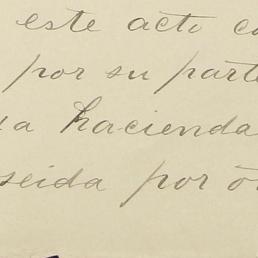 este acto
por su parte
hacienda
por